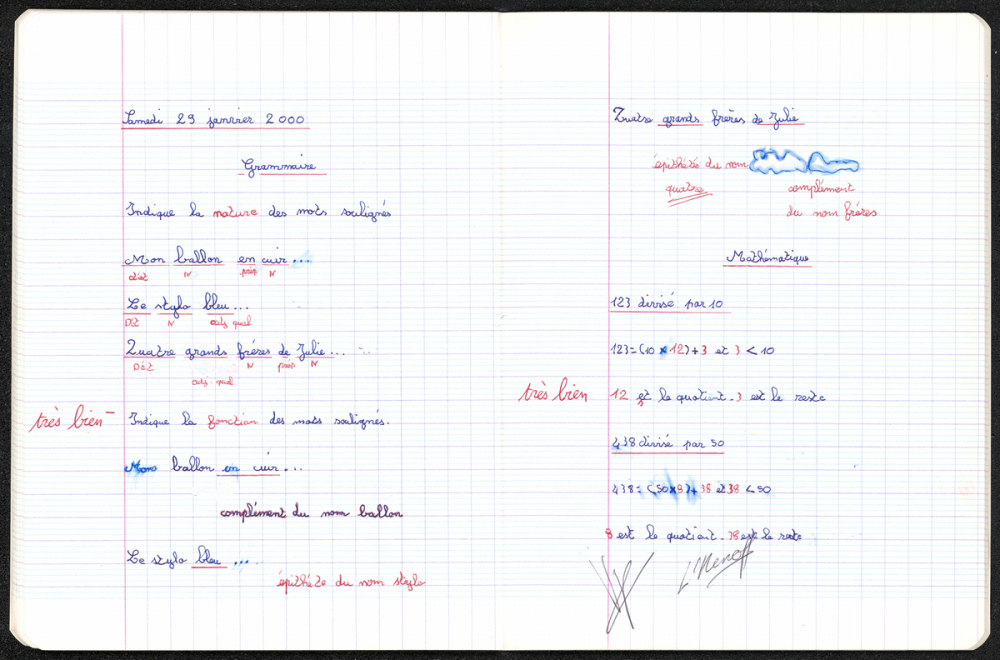 Samedi 29 janvier 2000
Grammaire
Indique la nature des mots soulignés
Mon ballon en cuir ...
dét N prép N
Le stylo bleu ...
Dét N adj qual
Quatre grands frères de Julie ...
Dét N prép N
adj qual
très bien
Indique la fonction des mots soulignés.
Mon ballon en cuir ...
complément du nom ballon
Le stylo bleu ...
épithète du nom stylo
Quatre grands frères de Julie
épithète du nom
quatre complément
du nom frères
Mathématique
123 divisé par 10
123 = (10 x 12) + 3 et 3 < 10
très bien
12 et le quotient. 3 est le reste
438 divisé par 50
438 = (50 x 8) + 38 et 38 < 50
8 est le quotient. 38 est le reste